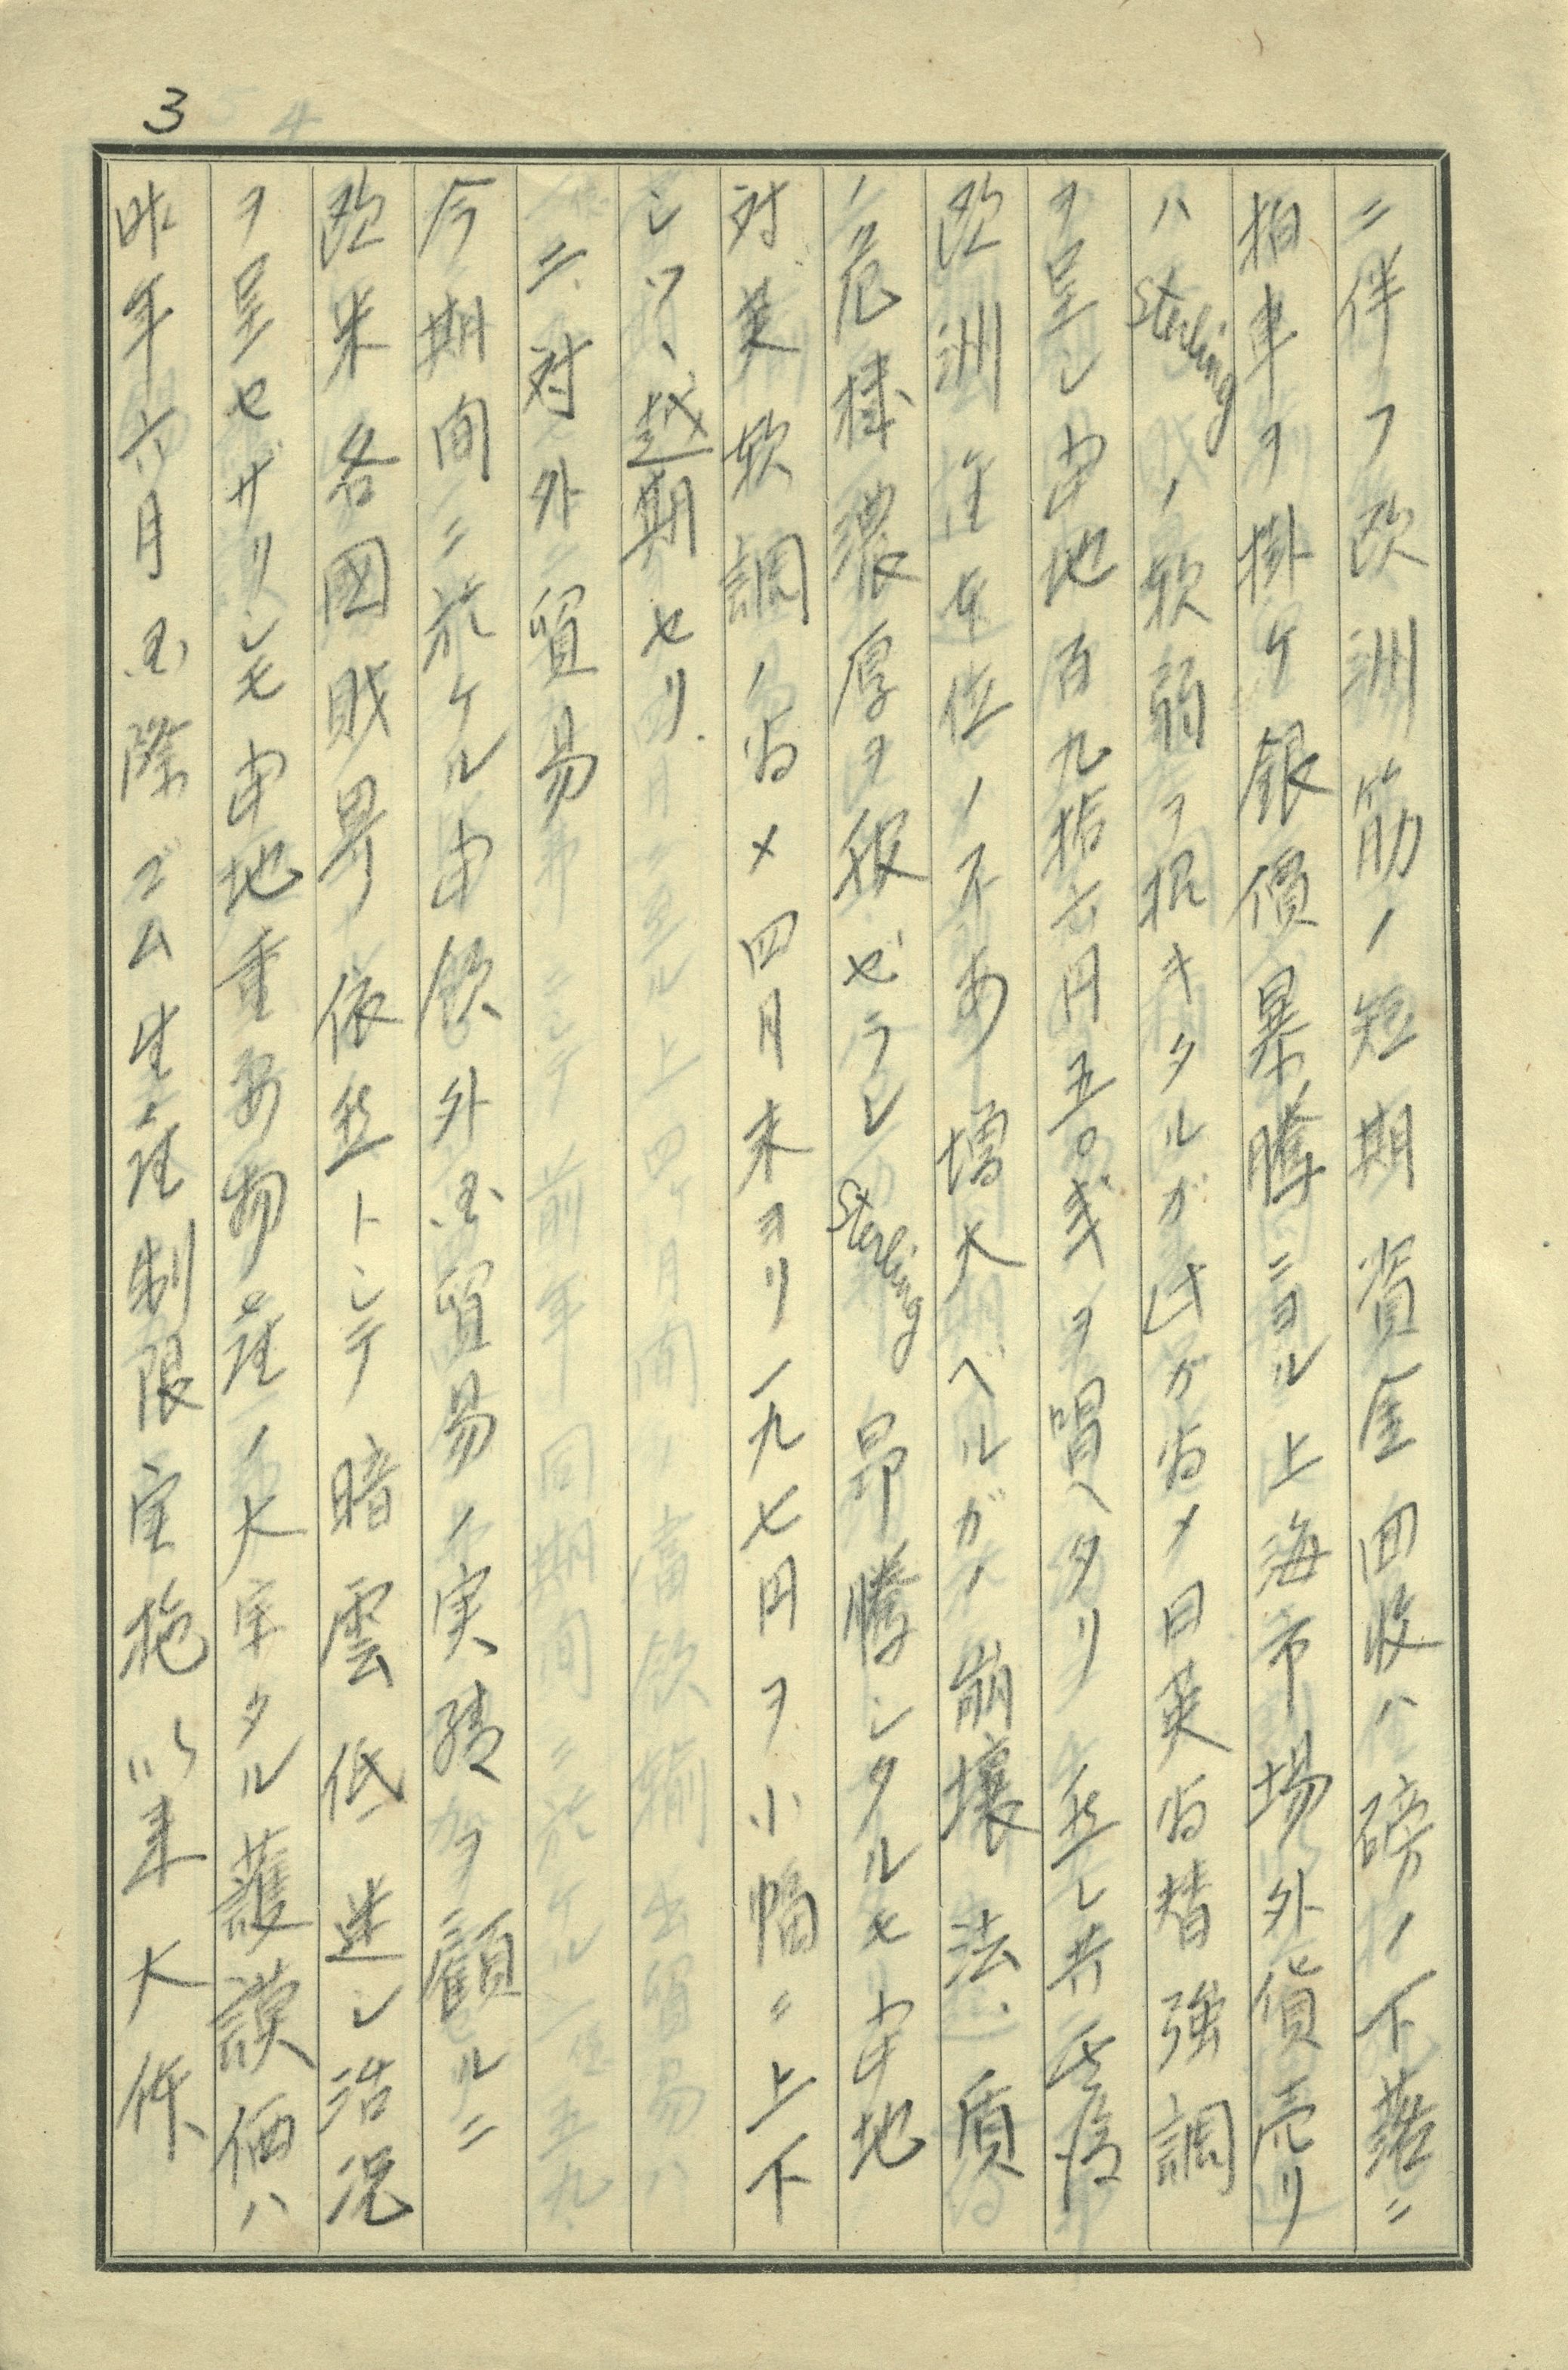 3
ニ伴フ欧洲筋ノ短期資金回收ハ磅ノ下落ニ
拍車ヲ掛ケ銀價暴騰ニヨル上海市場外貨売リ
ハSterlingノ軟弱ヲ招キタルガ此ガ為メ日英為替強調
ヲ呈シ当地百九拾六円五〇ガヲ唱ヘタリ 然レ共
欧洲 本位ノ不安増大スベルガノ崩壊 法貨
ノ危機濃厚ヲ報ゼラレSterling昂騰シタルモ当地
対英軟調ノ為メ四月末ヨリ一九七円ヲ小幅ニ上下
シツヽ越期セリ.
二、対外貿易
今期間ニ於ケル由領外国貿易ノ実績ヲ顧ルニ
欧米各國財界依然トシテ暗雲低迷シ活況
ヲ呈セザリシモ当地重要物産ノ大宗タル護謨価ハ
昨年六月国際ゴム生産制限実施以来大体